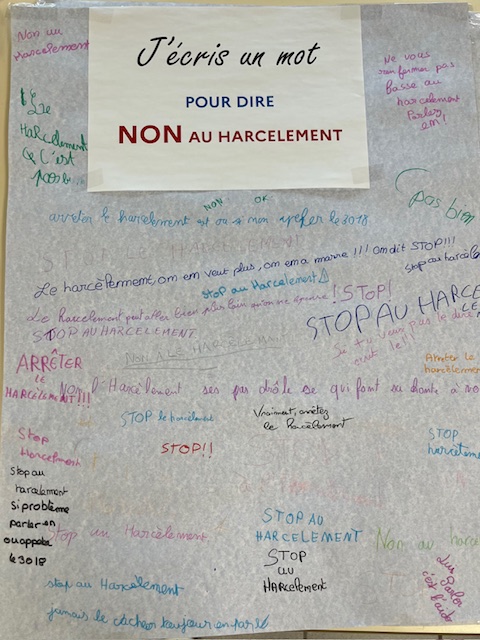 J'écris un mot
POUR DIRE
NON AU HARCELEMENT
Non au
Harcelement
Ne vous
renfermer pas
fasse au
harcelement
Parlez
en!
Le
Harcelement
C'est
pas b
pas bien
NON OK
arreter le harcèlement et ou si non appeler le 3018
HARCELEMENT
Le harcèlement, on en veut plus, on en a marre!!! On dit STOP!!!
Stop au harcèle
stop au Harcelement
Le harcelement peut aller bien plus loin
!STOP!
STOP AU HARCE
LE
STOP AU HARCELEMENT
NON A LE HARCELEMENT
Si tu veux plus le dire
ARRÊTER
le
HARCÈLEMENT!!!
Arrêter le
harcèlement
Non l'Harcèlement ses pas drôle se qui font sa
STOP le harcèlement
Vraiment, arrêtez
le harcèlement
Stop
Harcelment
STOP!!
STOP
harcèleme
Stop au
harcelement
Si problème
parler-en
ou appeler
le 3018
Stop au Harcèlement
STOP AU
HARCÈLEMENT
STOP
au
Harcelement
Non au harce
stop au Harcèlement
jamais le cacher toujour en parlé
Parler
c'est